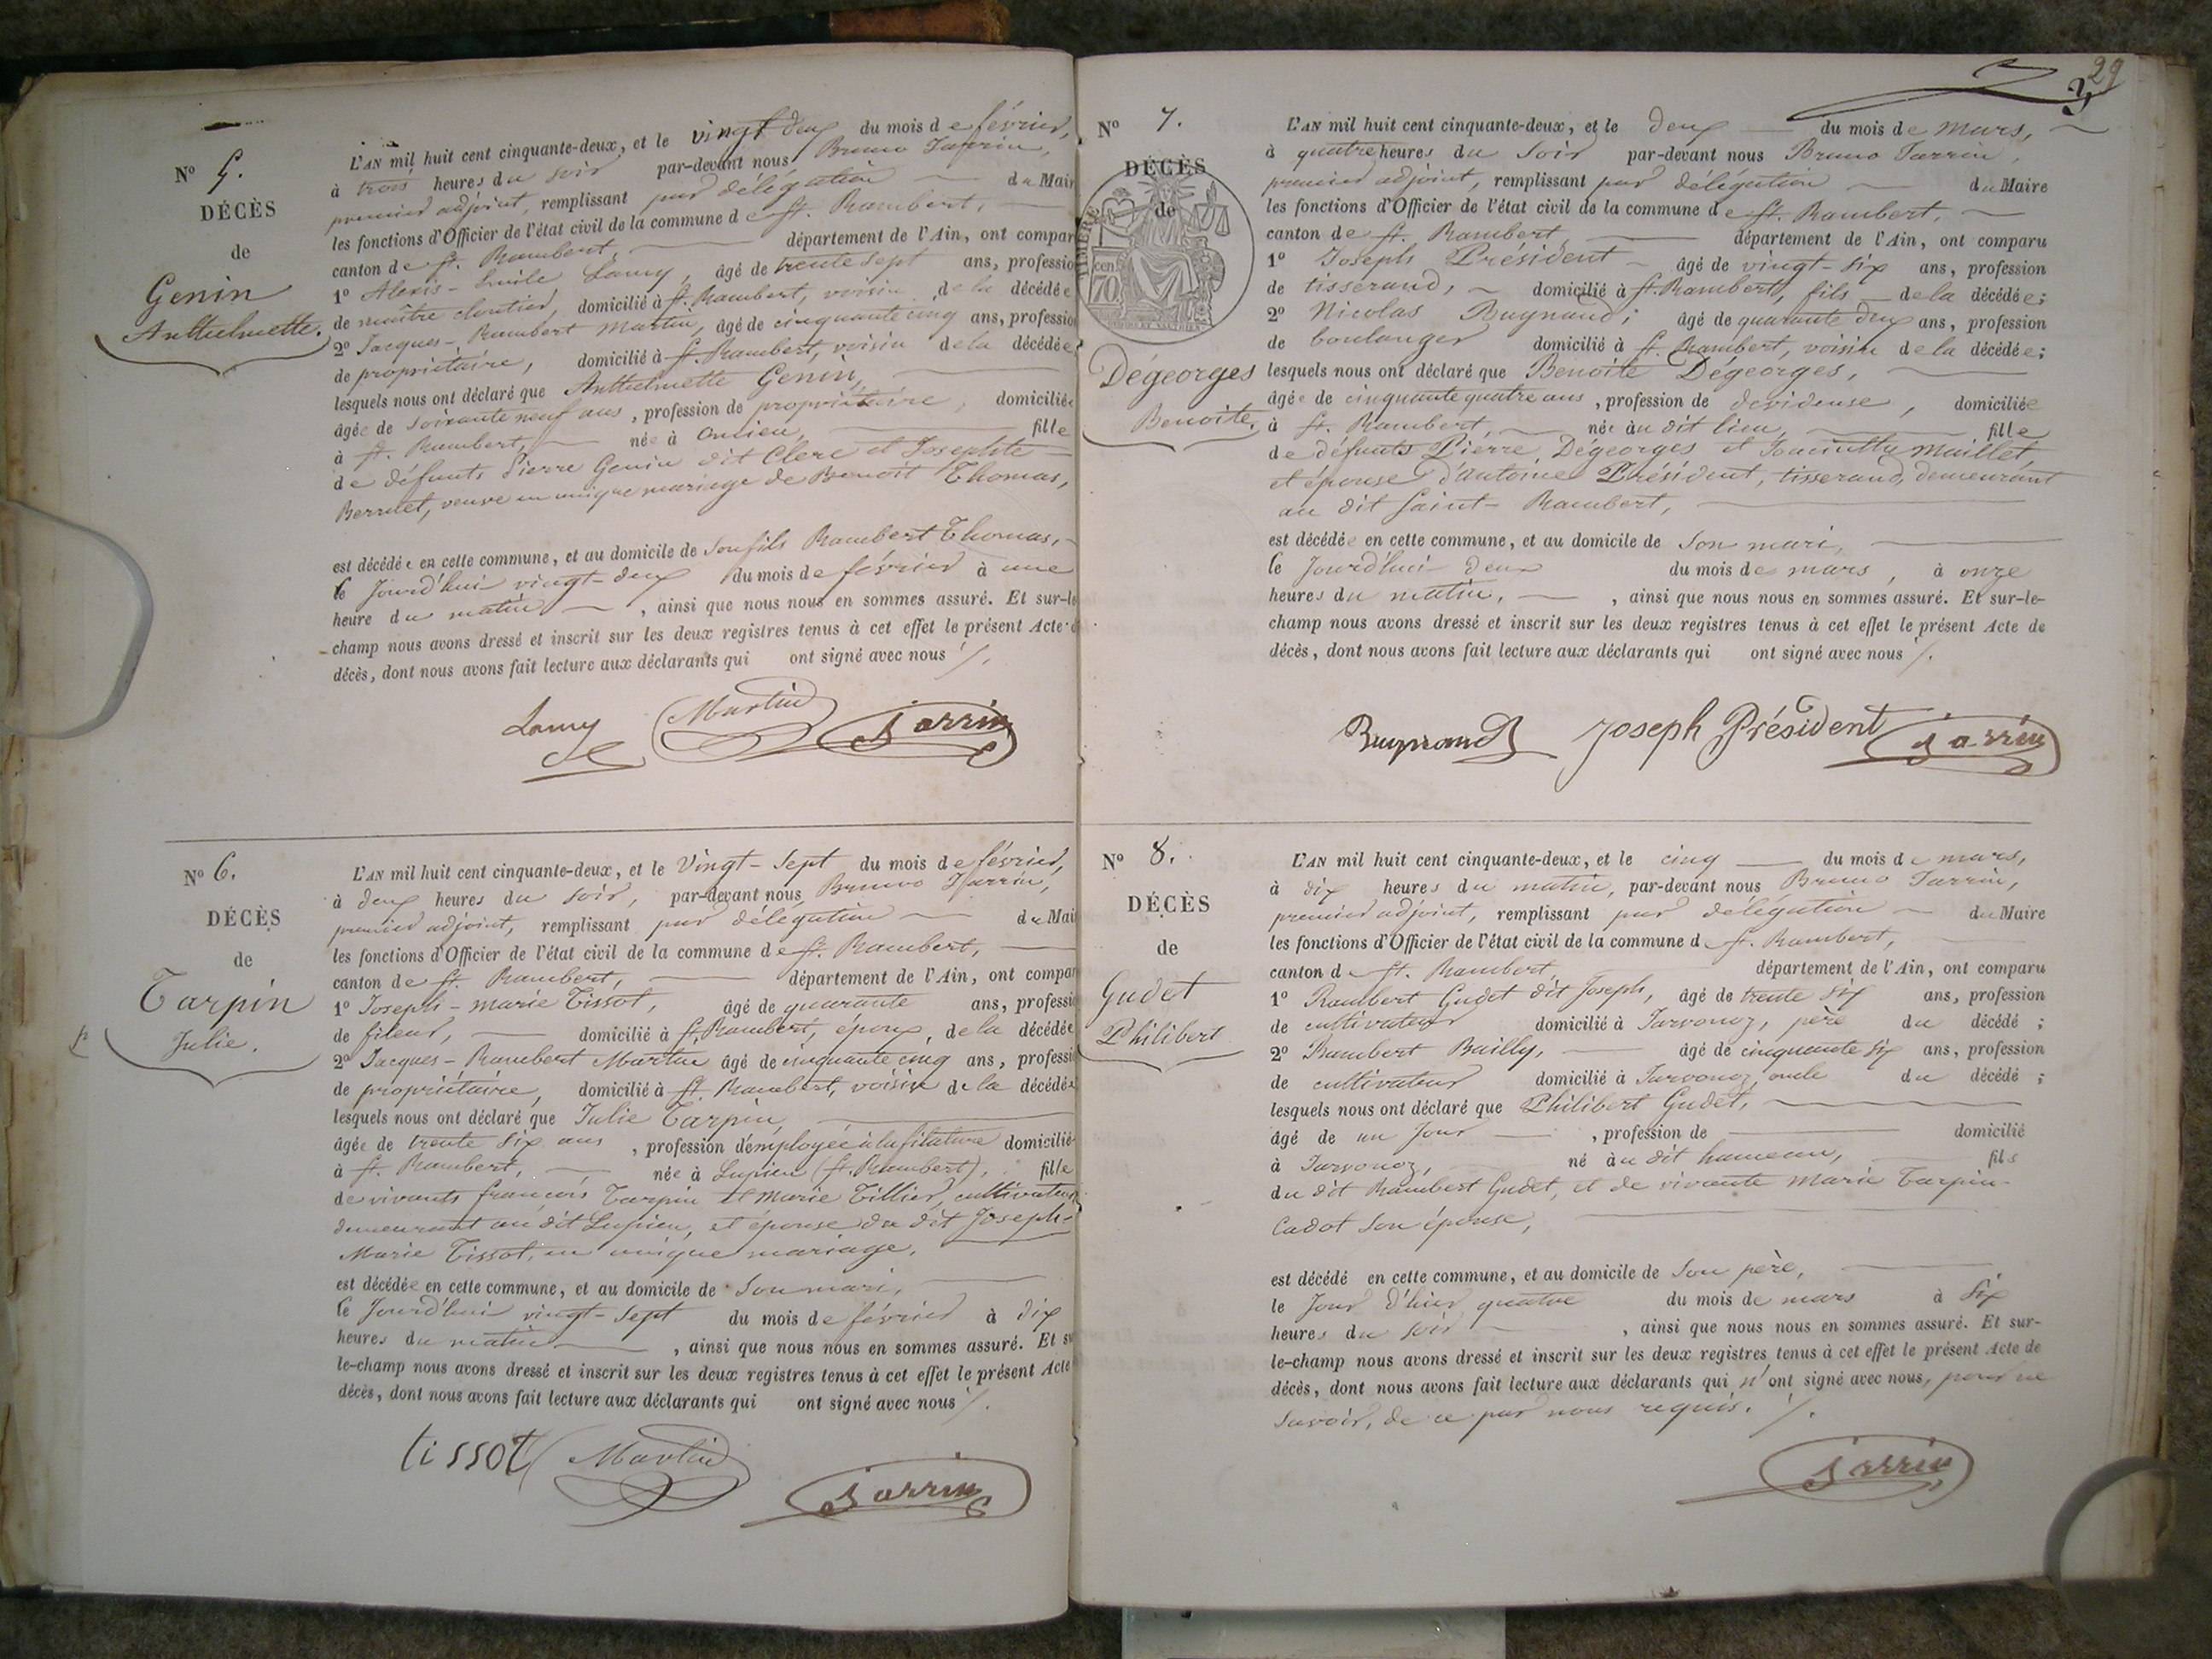 N° 5.
DÉCÈS
de
Genin
Anthelmette.
L'AN mil huit cent cinquante-deux, et le vingt deux du mois de février,
à trois heures du soir par-devant nous Bruno Jarrin,
premier adjoint, remplissant par délégation du Mair
les fonctions d'Officier de l'état civil de la commune de St. Rambert,
canton de St. Rambert, département de l'Ain, ont compar
1° Alexis-Emile Lamy, âgé de trente sept ans, professio
de maître cloutier, domicilié à St. Rambert, voisin de la décédée
2° Jacques-Rambert Martin, âgé de cinquante cinq ans, profession
de propriétaire, domicilié à St. Rambert, voisin de la décédée
lesquels nous ont déclaré que Anthelmette Genin,
âgée de soixante neuf ans, profession de propriétaire, domiciliée
à St. Rambert, née à Oncieu, fille
de défunts Pierre Genin dit Clerc et Josephte
Berrutet, veuve en unique mariage de Benoit Thomas,
est décédée en cette commune, et au domicile de son fils Rambert Thomas,
le jourd'hui vingt-deux du mois de février à une
heure du matin, ainsi que nous nous en sommes assuré. Et sur-le
champ nous avons dressé et inscrit sur les deux registres tenus à cet effet le présent Acte d
décès, dont nous avons fait lecture aux déclarants qui ont signé avec nous /.
Lamy Martin Jarrin
N° 6.
DÉCÈS
de
Tarpin
Julie.
L'AN mil huit cent cinquante-deux, et le Vingt-sept du mois de février,
à deux heures du soir, par-devant nous Bruno Jarrin,
premier adjoint, remplissant par délégation du Mai
les fonctions d'Officier de l'état civil de la commune de St. Rambert,
canton de St. Rambert, département de l'Ain, ont compar
1° Joseph-marie Tissot, âgé de quarante ans, professio
de fileur, domicilié à St. Rambert, époux de la décédée
2° Jacques-Rambert Martin âgé de cinquante cinq ans, professi
de propriétaire, domicilié à St. Rambert, voisin de la décédée
lesquels nous ont déclaré que Julie Tarpin,
âgée de trente six ans, profession d'employée à la filature domicilié
à St. Rambert, née à Lupieu (St. Rambert), fille
de vivants françois Tarpin et marie Tillier, cultivateurs
demeurant au dit Lupieu, et épouse du dit Joseph-
Marie Tissot, en unique mariage.
est décédée en cette commune, et au domicile de son mari,
le jourd'hui vingt-sept du mois de février à dix
heures du matin, ainsi que nous nous en sommes assuré. Et su
le-champ nous avons dressé et inscrit sur les deux registres tenus à cet effet le présent Acte
décès, dont nous avons fait lecture aux déclarants qui ont signé avec nous /.
tissot Martin Jarrin
29
3
N° 7.
DÉCÈS
de
TIMBRE
cen.
70
Dégeorges
Benoite.
L'AN mil huit cent cinquante-deux, et le deux du mois de mars,
à quatre heures du soir par-devant nous Bruno Jarrin,
premier adjoint, remplissant par délégation du Maire
les fonctions d'Officier de l'état civil de la commune de St. Rambert,
canton de St. Rambert département de l'Ain, ont comparu
1° Joseph Président âgé de vingt-six ans, profession
de tisserand, domicilié à St. Rambert, fils de la décédée;
2° Nicolas Buynand; âgé de quarante deux ans, profession
de boulanger domicilié à St. Rambert, voisin de la décédée;
lesquels nous ont déclaré que Benoite Dégeorges,
âgée de cinquante quatre ans, profession de devideuse, domiciliée
à St. Rambert, née au dit lieu, fille
de défunts Pierre Dégeorges et Maillet,
et épouse d'Antoine Président, tisserand, demeurant
au dit Saint-Rambert,
est décédée en cette commune, et au domicile de son mari,
le jourd'hui deux du mois de mars, à onze
heures du matin, ainsi que nous nous en sommes assuré. Et sur-le-
champ nous avons dressé et inscrit sur les deux registres tenus à cet effet le présent Acte de
décès, dont nous avons fait lecture aux déclarants qui ont signé avec nous /.
Buynand Joseph Président Jarrin
N° 8.
DÉCÈS
de
Gudet
Philibert
L'AN mil huit cent cinquante-deux, et le cinq du mois de mars,
à dix heures du matin, par-devant nous Bruno Jarrin,
premier adjoint, remplissant par délégation du Maire
les fonctions d'Officier de l'état civil de la commune de St. Rambert,
canton de St. Rambert, département de l'Ain, ont comparu
1° Rambert Gudet dit Joseph, âgé de trente six ans, profession
de cultivateur domicilié à Javornoz, père du décédé;
2° Rambert Bailly, âgé de cinquante six ans, profession
de cultivateur domicilié à Javornoz, oncle du décédé;
lesquels nous ont déclaré que Philibert Gudet,
âgé de un jour, profession de domicilié
à Javornoz, né au dit hameau, fils
du dit Rambert Gudet, et de vivante Marie Tarpin-
Cadot son épouse,
est décédé en cette commune, et au domicile de son père,
le jour d'hier quatre du mois de mars à six
heures du soir, ainsi que nous nous en sommes assuré. Et sur-
le-champ nous avons dressé et inscrit sur les deux registres tenus à cet effet le présent Acte de
décès, dont nous avons fait lecture aux déclarants qui n'ont signé avec nous, pour ne
savoir, de ce par nous requis. /.
Jarrin